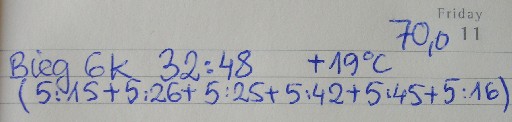 Friday
70,0 11
Bieg 6k 32:48 +19°C
(5:15+5:26+5:25+5:42+5:45+5:16)